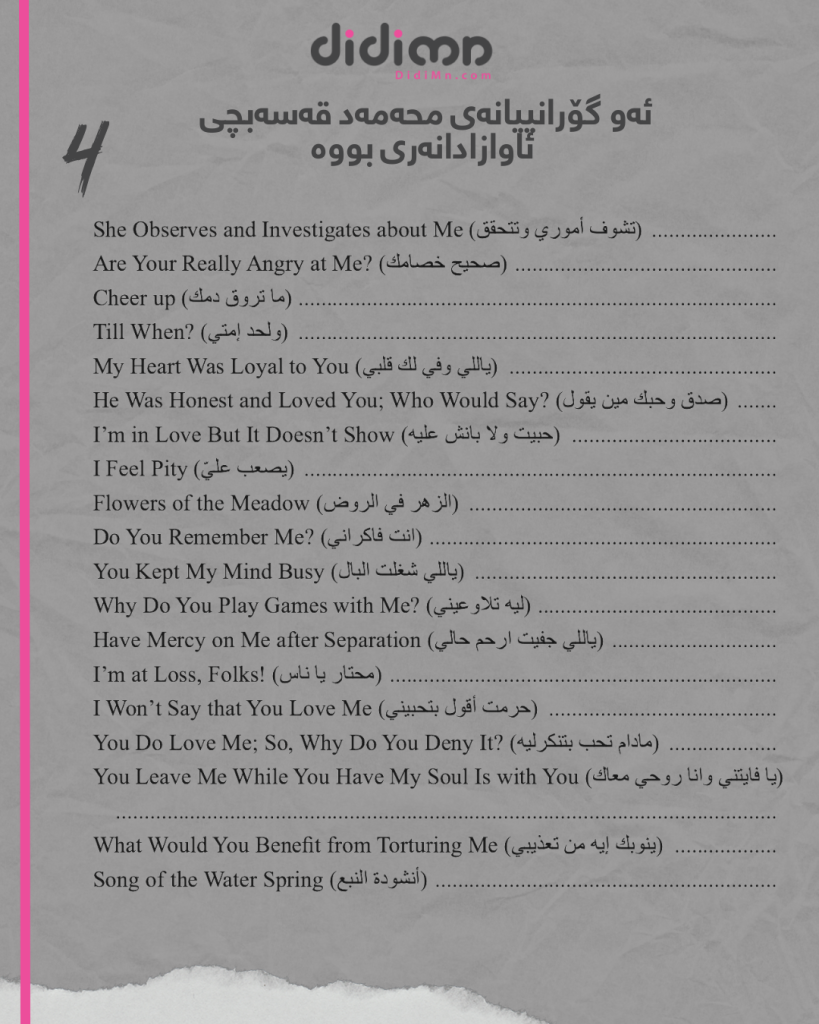 didimn
DidiMn.com
ئەو گۆرانییانەی محەمەد قەسەبچی
ئاوازادانەری بووە
4
She Observes and Investigates about Me (تشوف أموري وتتحقق) ......................
Are Your Really Angry at Me? (صحيح خصامك) ..............................................
Cheer up (ما تروق دمك) ....................................................................................
Till When? (ولحد إمتي) ....................................................................................
My Heart Was Loyal to You (ياللي وفي لك قلبي) ...............................................
He Was Honest and Loved You; Who Would Say? (صدق وحبك مين يقول) .......
I’m in Love But It Doesn’t Show (حبيت ولا بانش عليه) ....................................
I Feel Pity (يصعب عليّ) ...................................................................................
Flowers of the Meadow (الزهر في الروض) ......................................................
Do You Remember Me? (انت فاكراني) .............................................................
You Kept My Mind Busy (ياللي شغلت البال) .....................................................
Why Do You Play Games with Me? (ليه تلاوعيني) ..........................................
Have Mercy on Me after Separation (ياللي جفيت ارحم حالي) .............................
I’m at Loss, Folks! (محتار يا ناس) ....................................................................
I Won’t Say that You Love Me (حرمت أقول بتحبيني) ........................................
You Do Love Me; So, Why Do You Deny It? (مادام تحب بتنكرليه) ...................
You Leave Me While You Have My Soul Is with You (يا فايتني وانا روحي معاك)
....................................................................................................................
What Would You Benefit from Torturing Me (ينوبك إيه من تعذيبي) ..................
Song of the Water Spring (أنشودة النبع) ............................................................